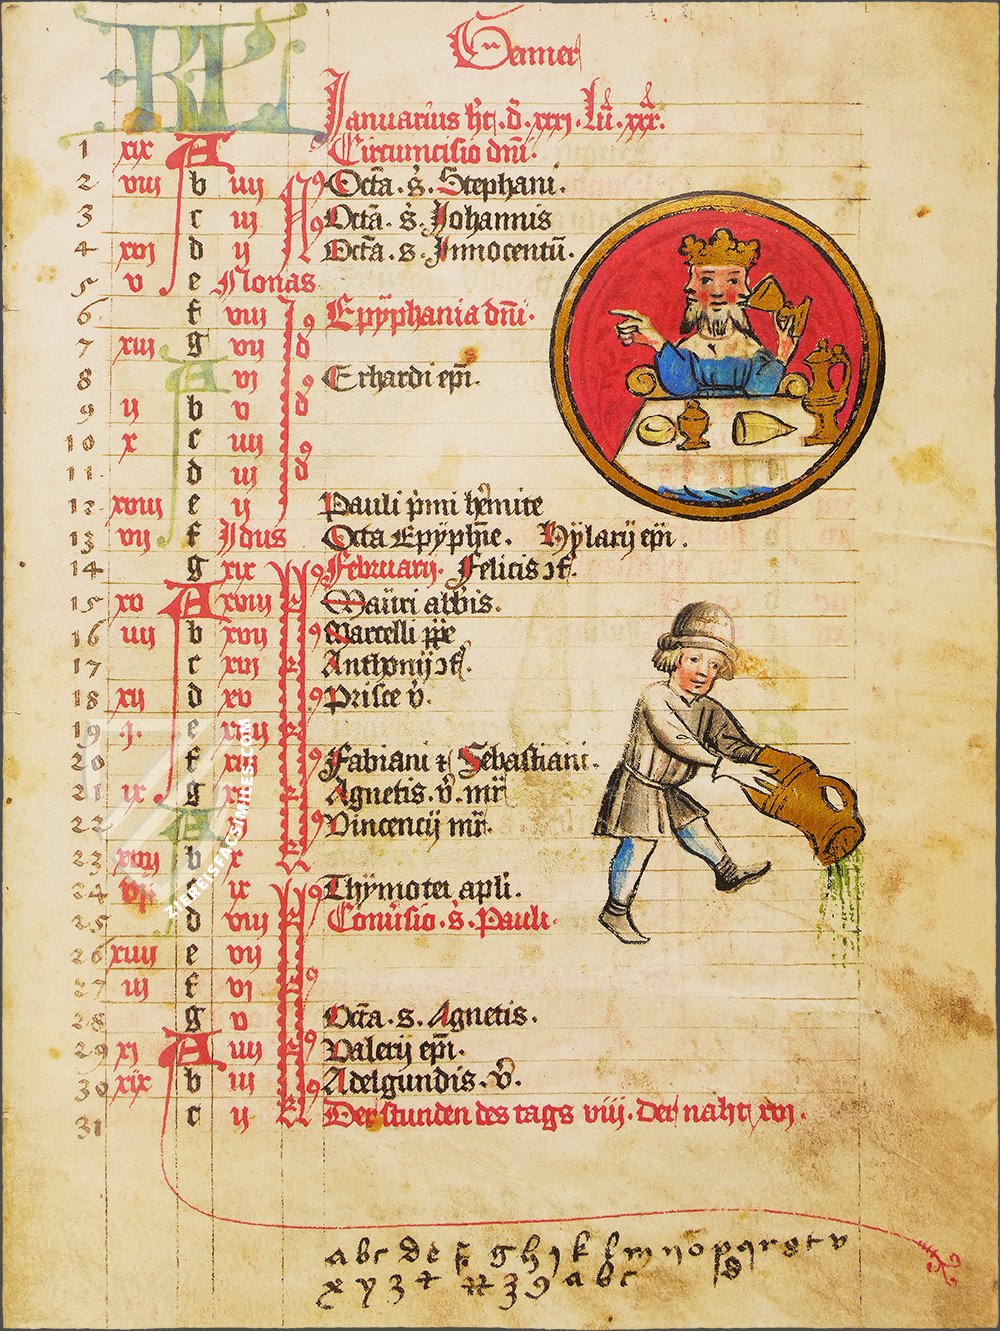 KL Genner
Januarius ht. d. xxxj. Lu. xxx.
1 xix A Circumcisio dni.
2 viij b iiij N9 Octa. s. Stephani.
3 c iij 9 Octa. s. Johannis
4 xvj d ij Octa. s. Innocentu.
5 v e Nonas
6 f viij J9 Epyphania dni.
7 xiij g vij d
8 A vj 9 Erhardi epi.
9 ij b v d
10 x c iiij 9
11 d iij d
12 xviij e ij Pauli pmi hmite
13 vij f Idus Octa Epyphie. Hylarij epi.
14 g xix 9 Februarij. Felicis cf.
15 xv A xviij Mauri abbis.
16 iiij b xvij 9 Marcelli ppe
17 c xvj Anthonij cf.
18 xij d xv 9 Prisce v.
19 .j. e xiiij
20 f xiij 9 Fabiani et Sebastiani.
21 ix g xij Agnetis. v. mr
22 A xj 9 Vincencij mr.
23 xvij b x
24 vj c ix 9 Thymotei apli.
25 d viij Conusio. s. Pauli.
26 xiiij e vij
27 iij f vj 9
28 g v Octa. s. Agnetis.
29 xj A iiij 9 Valerij epi.
30 xix b iij 9 Adelgundis. v.
31 c ij Der stunden des tags viij. Der naht xvj.
a b c d e f g h i k l m n o p q r s t v
x y z a b c
ZIEREISFACSIMILES.COM